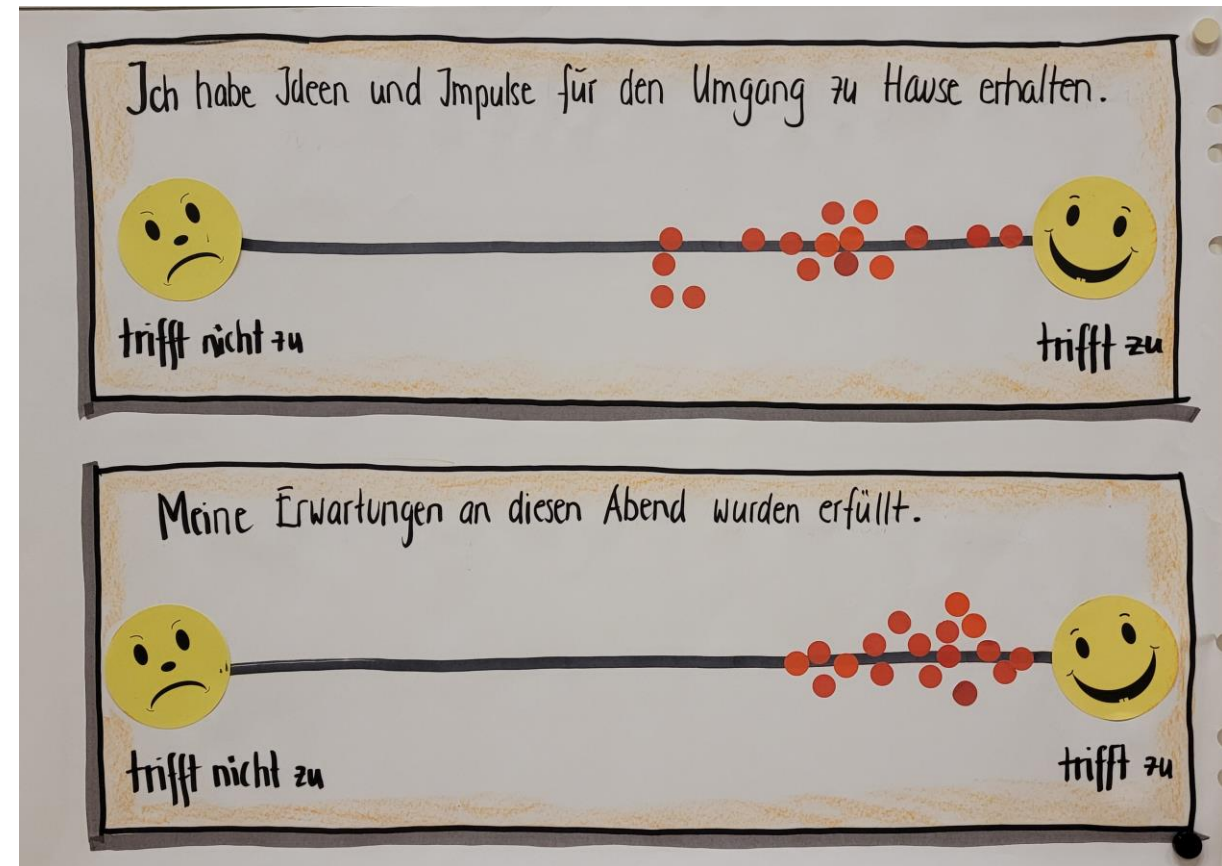 Ich habe Ideen und Impulse für den Umgang zu Hause erhalten.
trifft nicht zu
trifft zu
Meine Erwartungen an diesen Abend wurden erfüllt.
trifft nicht zu
trifft zu